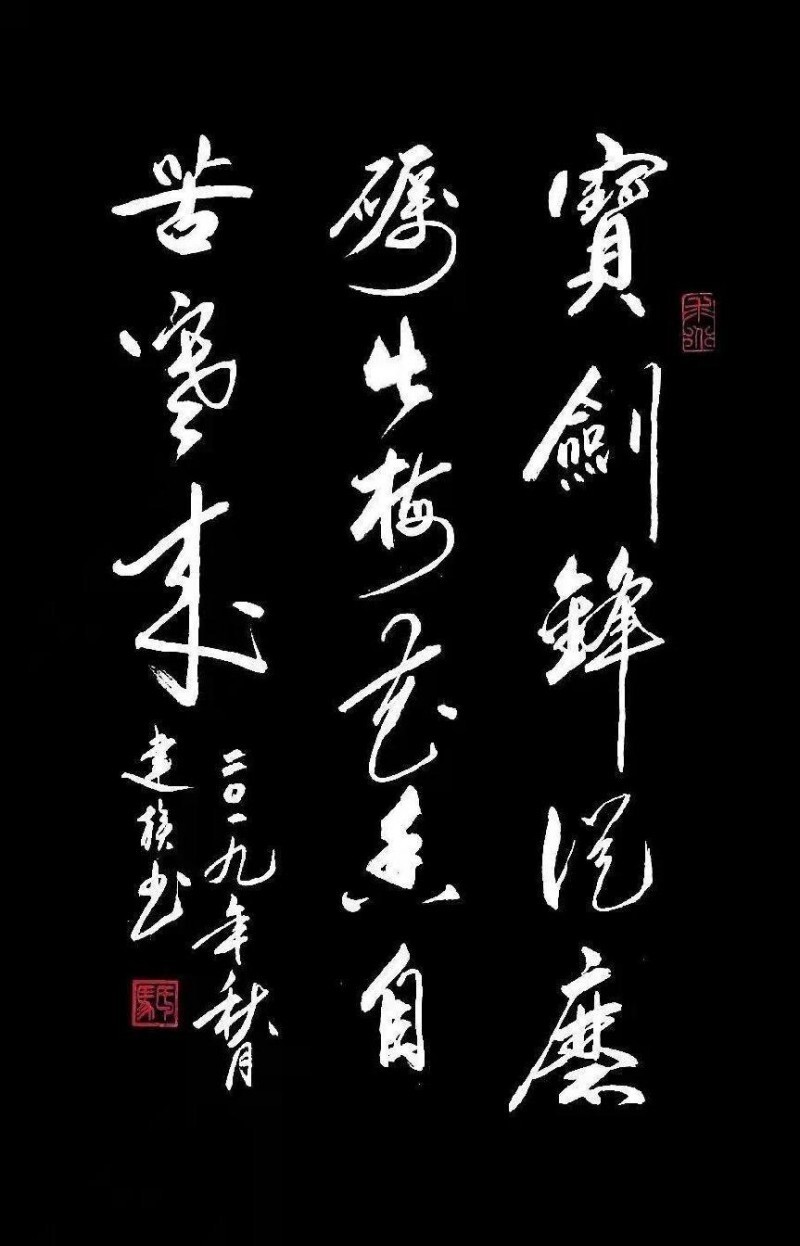 寶劍鋒從磨
礪出梅花香自
苦寒來
二〇一九年秋月
建族书